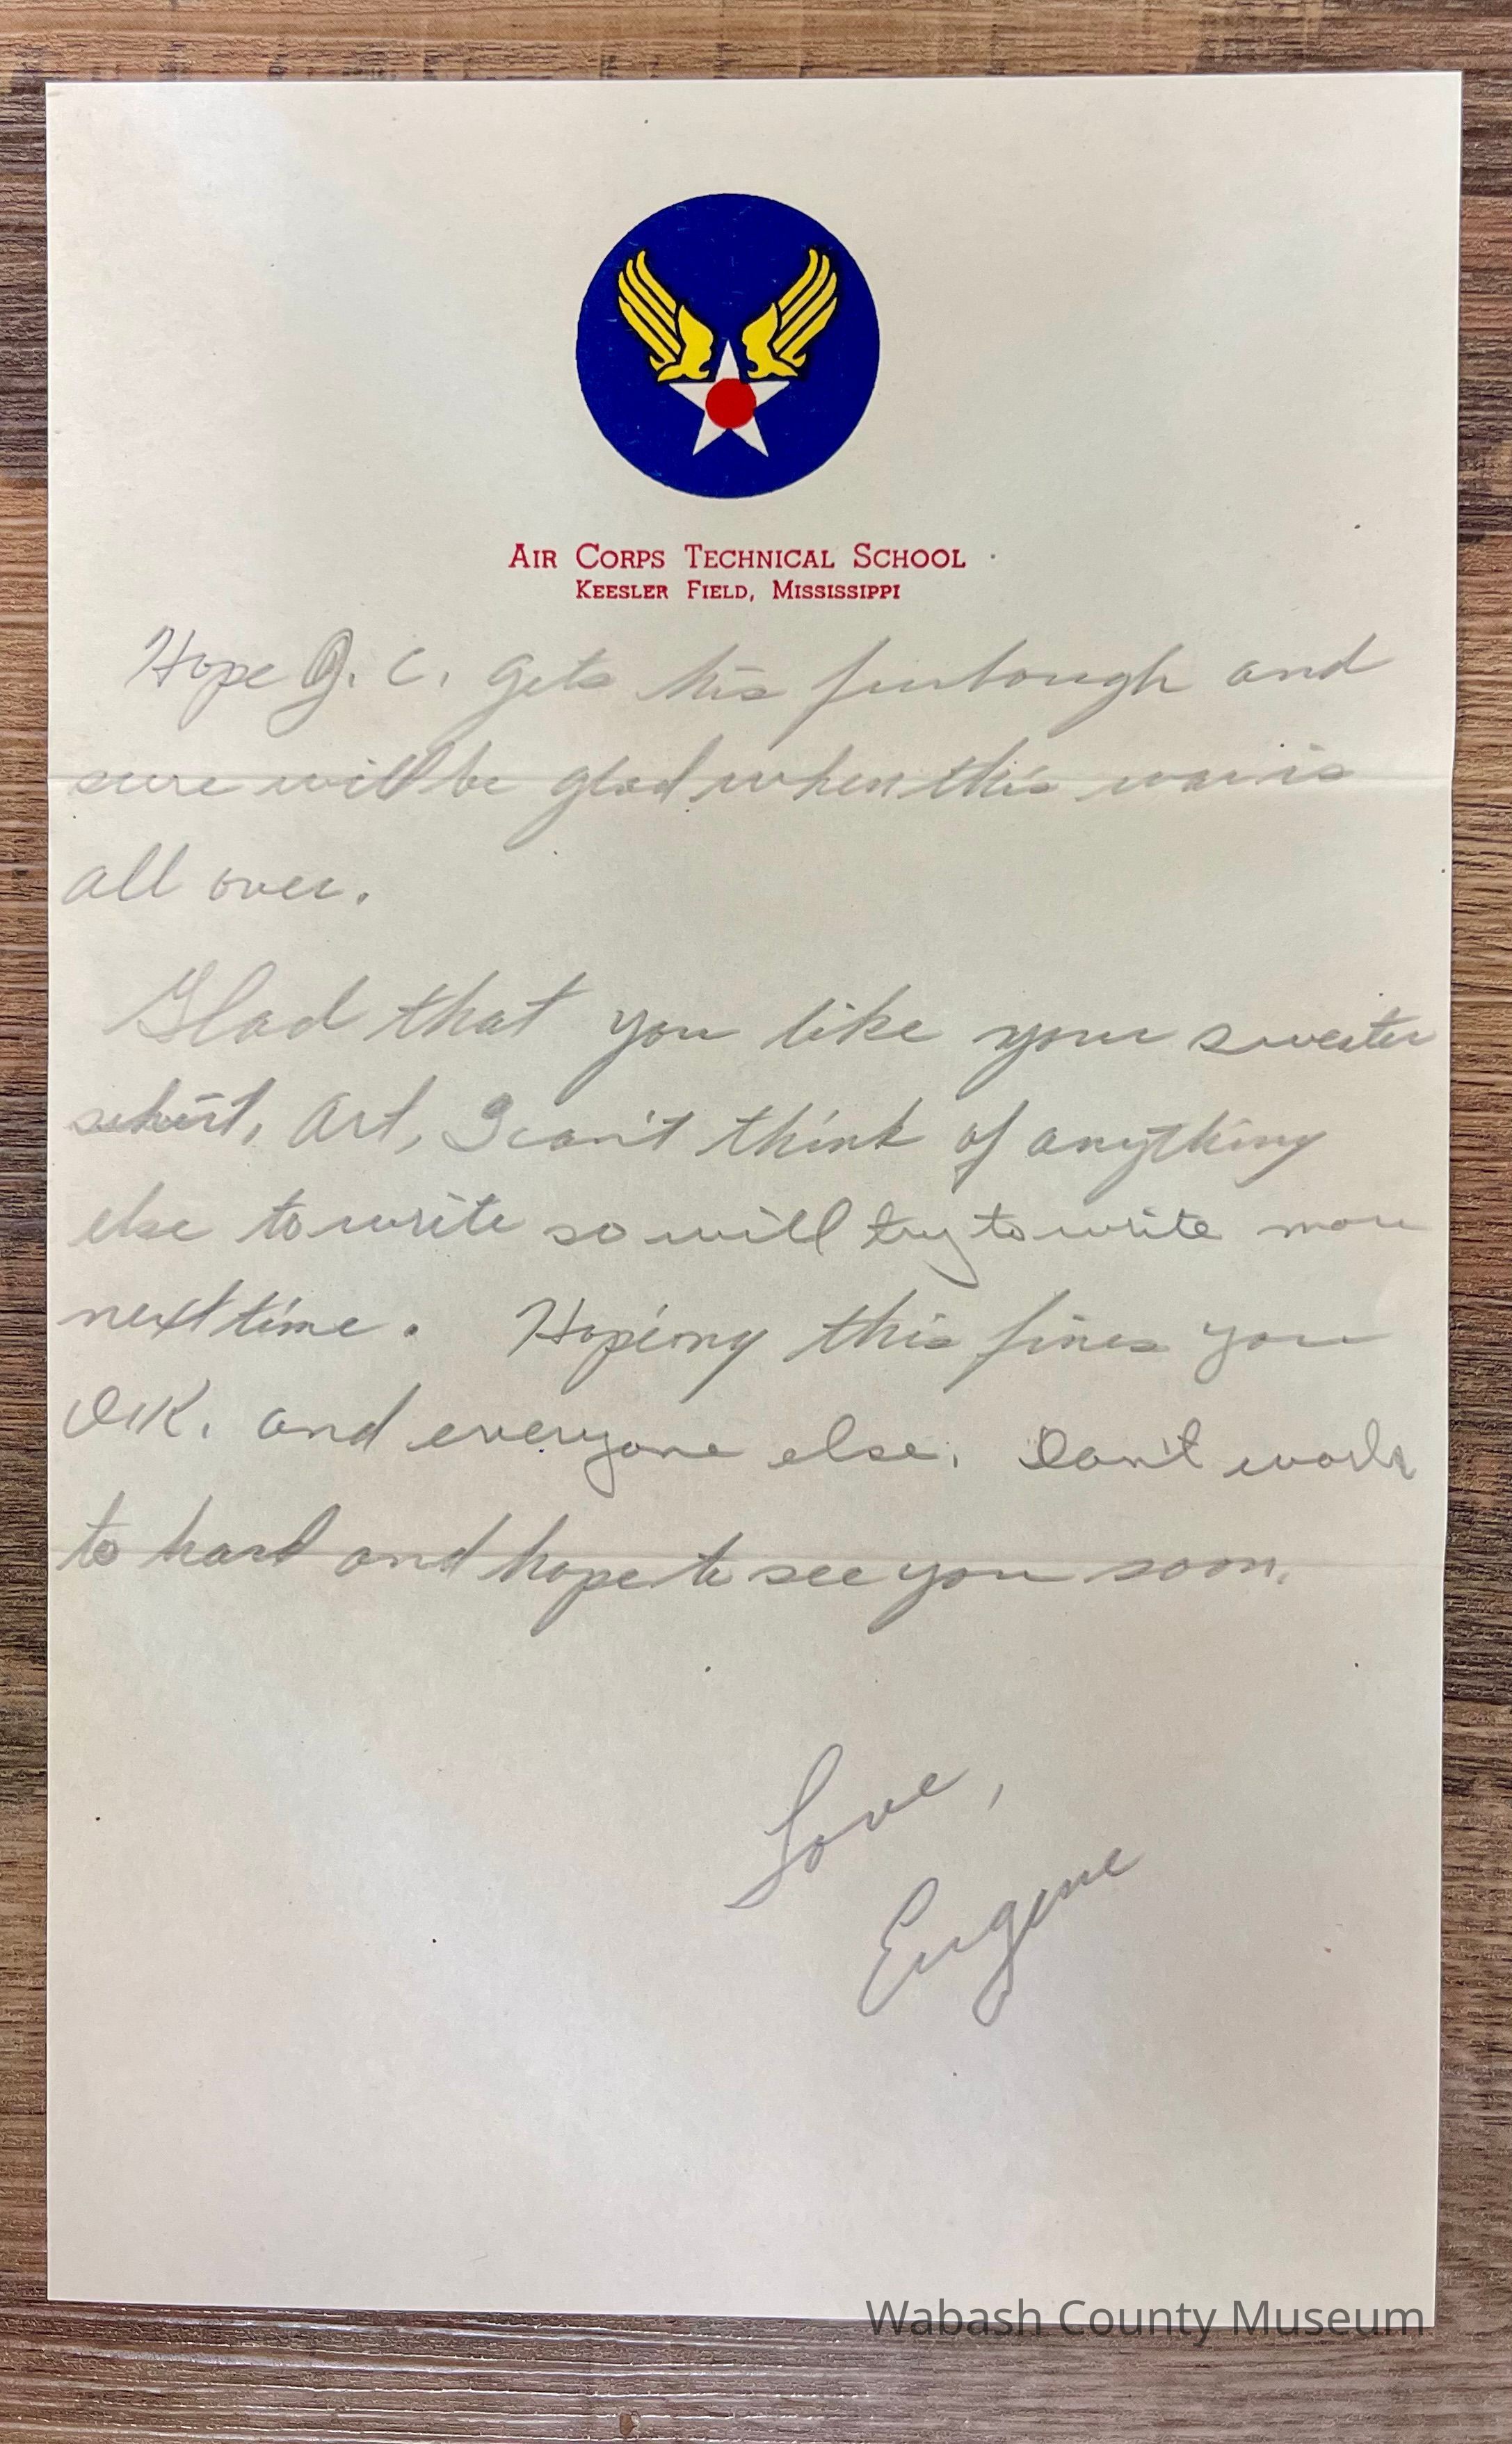 AIR CORPS TECHNICAL SCHOOL
KEESLER FIELD, MISSISSIPPI
Hope J. C. gets his furlough and
sure will be glad when this war is
all over.
Glad that you like your sweater
shirt, Art, I can't think of anything
else to write so will try to write more
next time. Hopeing this fines you
O.K. and everyone else. Don't work
to hard and hope to see you soon.
Love,
Eugene
Wabash County Museum